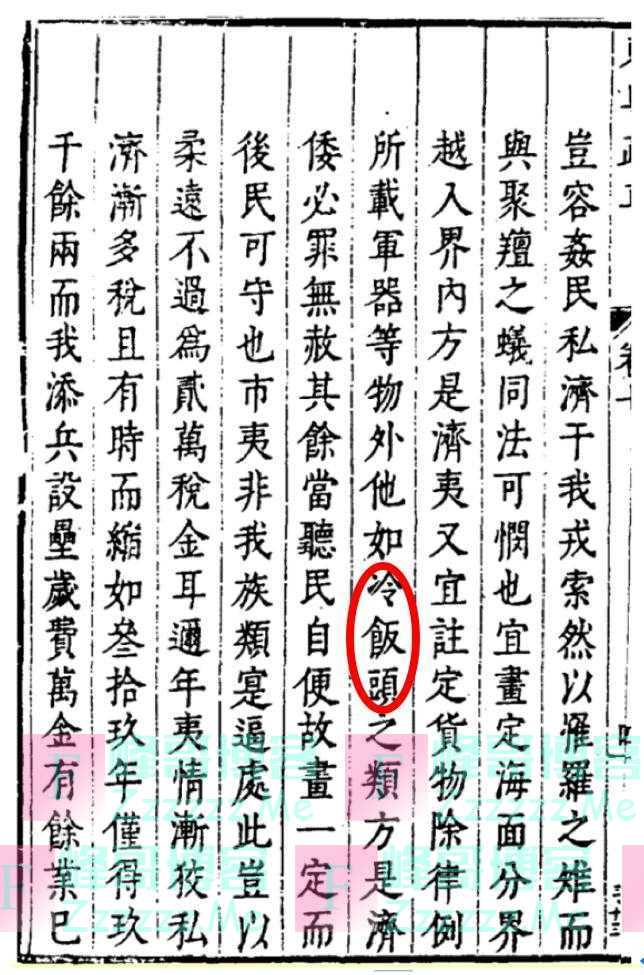 豈容姦民私濟干我戎索然以罹羅之雉而
與聚羶之蟻同法可憫也宜畫定海面分界
越入界內方是濟夷又宜註定貨物除律例
所載軍器等物外他如冷飯頭之類方是濟
倭必罪無赦其餘當聽民自便故畫一定而
後民可守也市夷非我族類寔逼處此豈以
柔遠不過爲貳萬稅金耳邇年夷情漸狡私
濟漸多稅且有時而縮如叄拾玖年僅得玖
千餘兩而我添兵設壘歲費萬金有餘業已
峰哥博客
Zzzzzz.Me